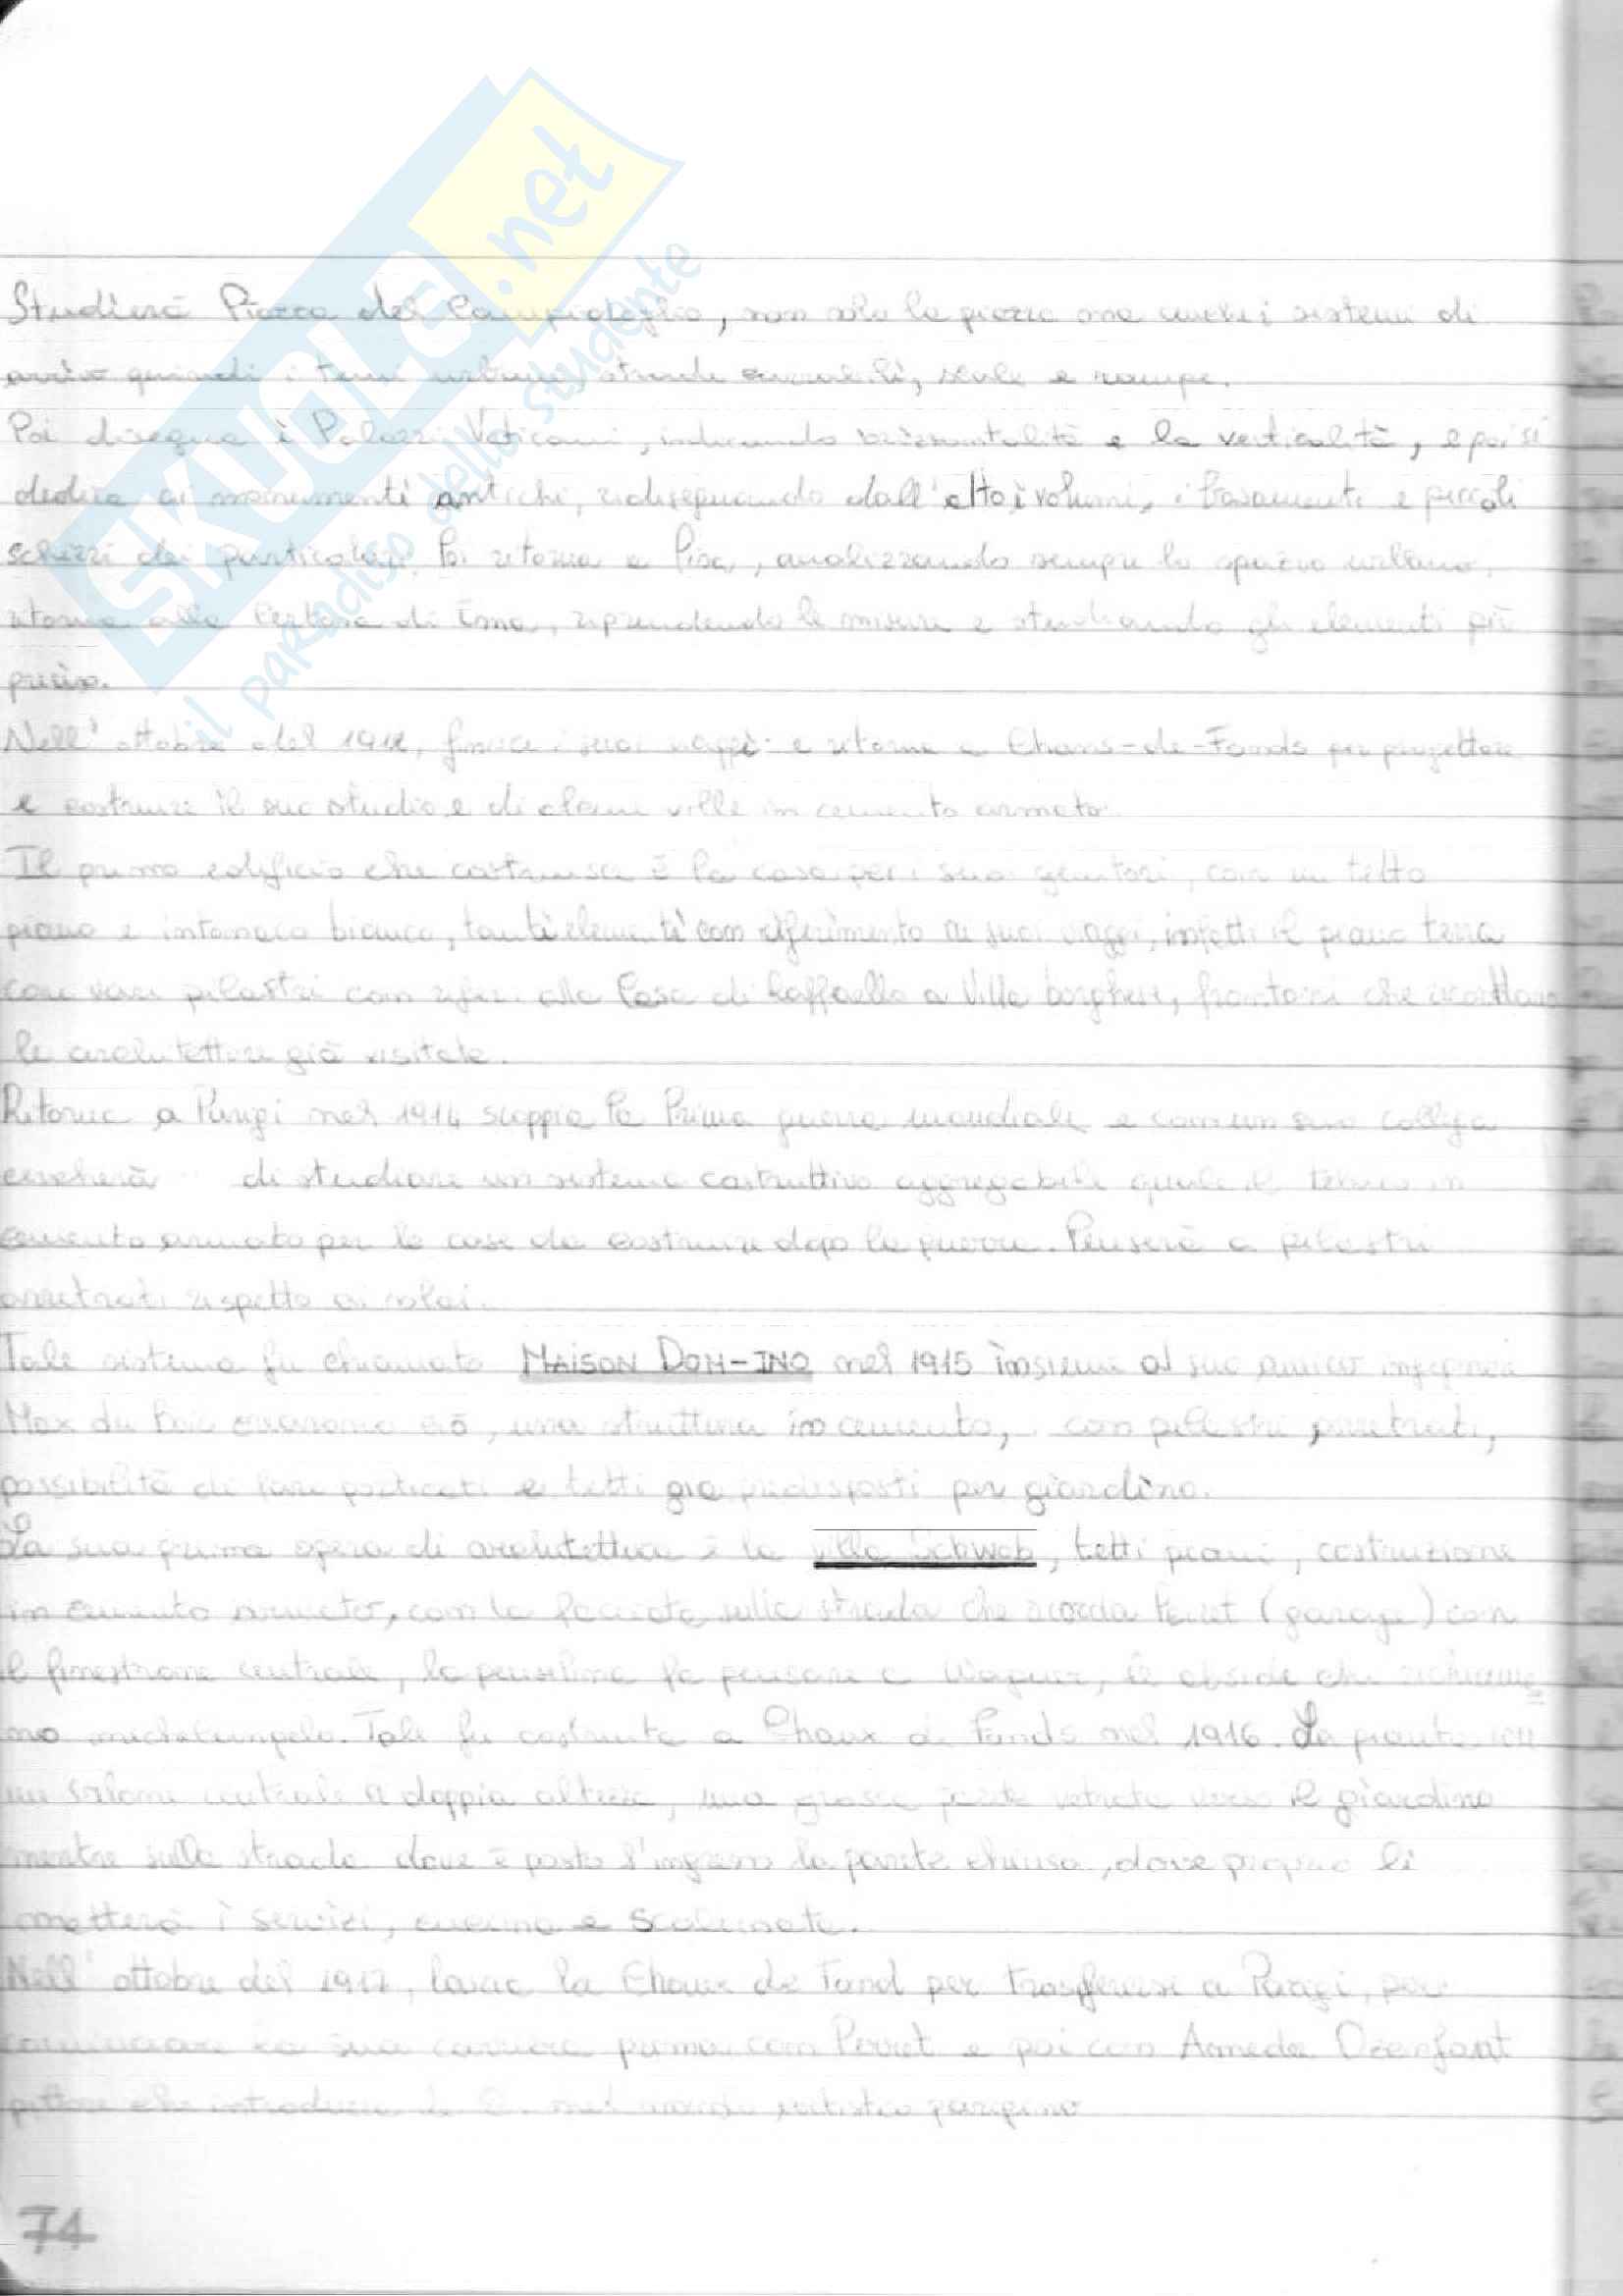 SKUOLA.net
il paradiso dello studente
Studierà Piazza del Campidoglio, non solo la piazza ma anche i sistemi di
arrivo quindi i temi urbani strade carrabili, scale e rampe.
Poi disegna i Palazzi Vaticani, indicando orizzontalità e la verticalità, e poi si
dedica ai monumenti antichi, ridisegnando dall'alto i volumi, i basamenti e piccoli
schizzi dei particolari. Poi ritorna a Pisa, analizzando sempre lo spazio urbano,
ritorna alla Certosa di Ema, riprendendo le misure e studiando gli elementi più
precisi.
Nell'ottobre del finisce i suoi viaggi e ritorna a Chaus-de-Fonds per progettare
e costruire il suo studio e di alcune ville in cemento armato.
Il primo edificio che costruisce è la casa per i suoi genitori, con un tetto
piano e intonaco bianco, tanti elementi con riferimento ai suoi viaggi, infatti il piano terra
con vari pilastri con rifer. alla Casa di Raffaello a Villa borghese, frontoni che
le architetture già visitate.
Ritorna a Parigi nel 1914 scoppia la Prima guerra mondiale e con un suo collega
cercherà di studiare un sistema costruttivo aggregabile quale il telaio in
cemento armato per le case da costruire dopo la guerra. Penserà a pilastri
arretrati rispetto ai solai.
Tale sistema fu chiamato MAISON DOM-INO nel 1915 insieme al suo amico ingegnere
Max du Bois una struttura in cemento, con pilastri arretrati,
possibilità di fare porticati e tetti già predisposti per giardino.
La sua prima opera di architettura è la villa Schwob, tetti piani, costruzione
in cemento armato, con la facciata sulla strada che ricorda Perret (garage) con
il finestrone centrale, la pensilina fa pensare a Wagner, le absidi che richiama=
no michelangelo. Tale fu costruita a Chaux de Fonds nel 1916. La pianta con
un salone centrale a doppia altezza, una grossa parete vetrata verso il giardino
mentre sulla strada dove è posto l'ingresso la parete chiusa, dove proprio lì
metterà i servizi, cucina e scalinata.
Nell'ottobre del 1917, lascia la Chaux de Fond per trasferirsi a Parigi, per
cominciare la sua carriera prima con Perret e poi con Amedee Ozenfant
pittore che introduce nel mondo artistico parigino
74